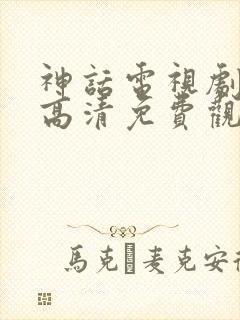 神話電視劇
高清免費觀
馬克 麥克安